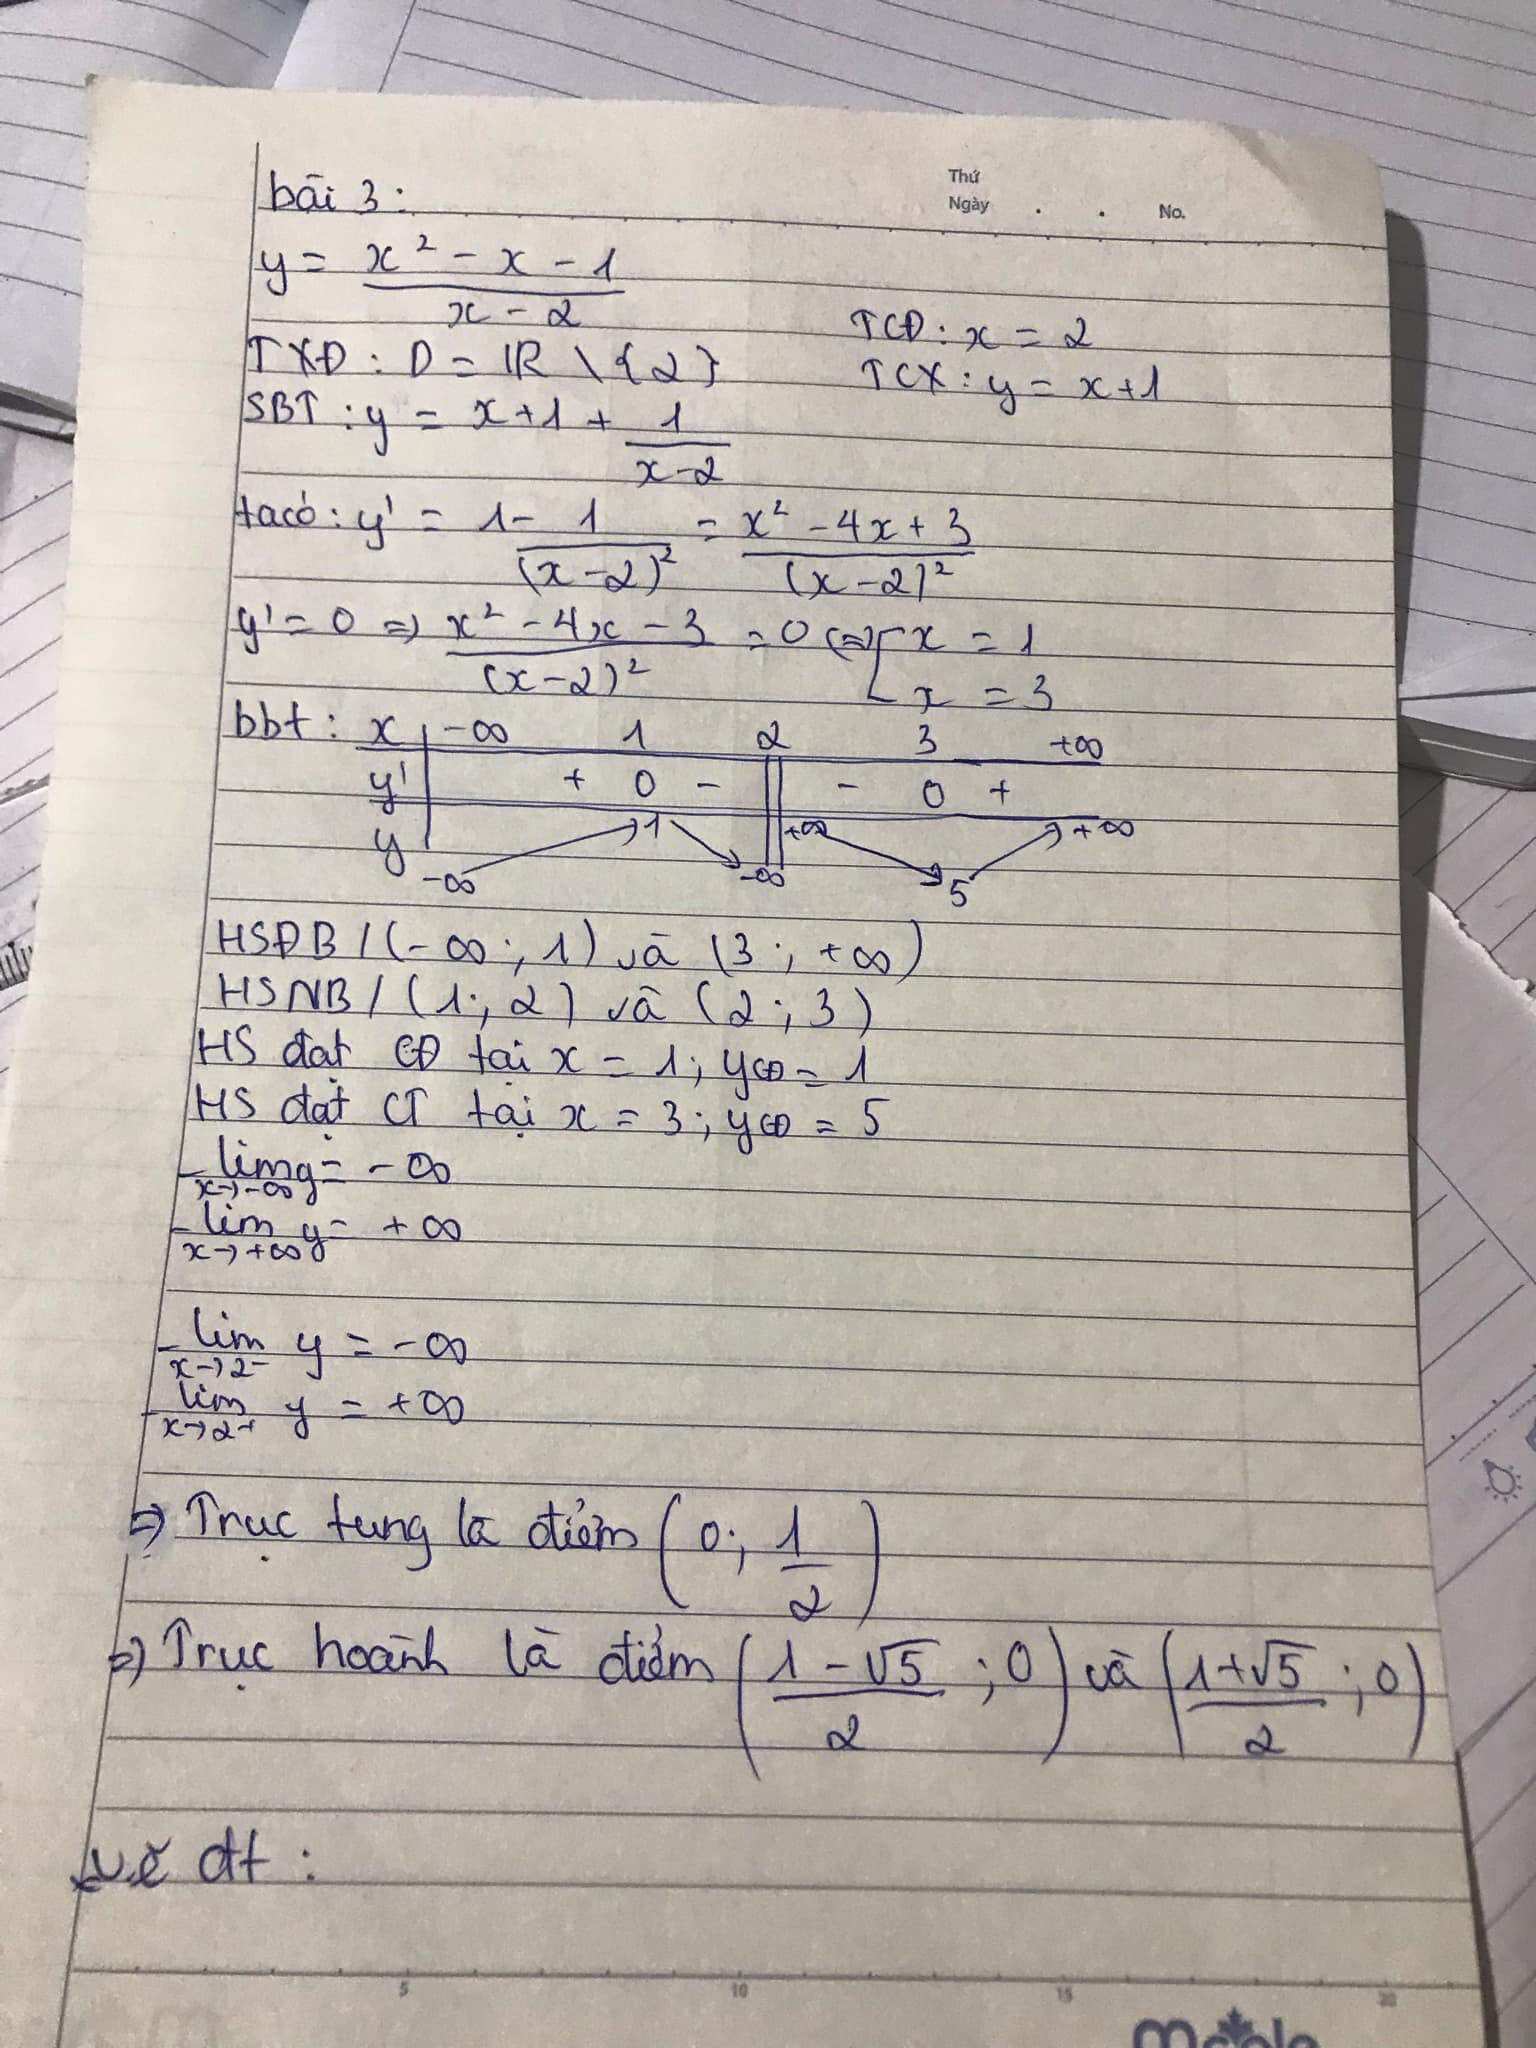 Thứ
Ngày . . No.
bài 3:
y = (x² - x - 1)/(x - 2)
TCĐ: x = 2
TXĐ: D = ℝ \ {2}
TCX: y = x+1
SBT: y = x+1 + 1/(x-2)
ta có: y' = 1 - 1/(x-2)² = (x² - 4x + 3)/(x-2)²
y' = 0 => (x² - 4x - 3)/(x-2)² = 0 <=> [ x = 1
x = 3
bbt: x | -∞ 1 2 3 +∞
y' | + 0 - || - 0 +
y | -∞ → 1 → -∞ || +∞ → 5 → +∞
HSĐB / (-∞; 1) và (3; +∞)
HSNB / (1; 2) và (2; 3)
HS đạt CĐ tại x = 1; yCĐ = 1
HS đạt CT tại x = 3; yCĐ = 5
- lim y = -∞
x→-∞
- lim y = +∞
x→+∞
- lim y = -∞
x→2⁻
- lim y = +∞
x→2⁺
=> Trục tung là điểm (0; 1/2)
=> Trục hoành là điểm ((1-√5)/2; 0) và ((1+√5)/2; 0)
vẽ đt:
5 10 15 20